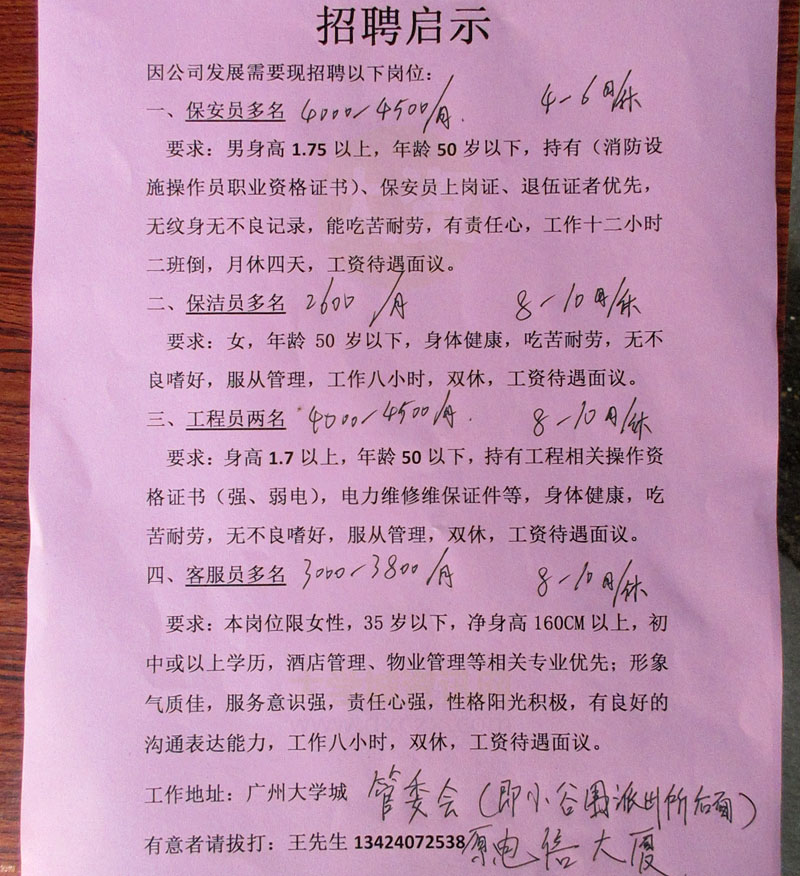 招聘启示
因公司发展需要现招聘以下岗位：
一、保安员多名 4000-4500/月. 4-6日/休
要求：男身高1.75以上，年龄50岁以下，持有（消防设
施操作员职业资格证书）、保安员上岗证、退伍证者优先，
无纹身无不良记录，能吃苦耐劳，有责任心，工作十二小时
二班倒，月休四天，工资待遇面议。
二、保洁员多名 2600/月 8-10日/休
要求：女，年龄50岁以下，身体健康，吃苦耐劳，无不
良嗜好，服从管理，工作八小时，双休，工资待遇面议。
三、工程员两名 4000-4500/月. 8-10日/休
要求：身高1.7以上，年龄50以下，持有工程相关操作资
格证书（强、弱电），电力维修维保证件等，身体健康，吃
苦耐劳，无不良嗜好，服从管理，双休，工资待遇面议。
四、客服员多名 3000-3800/月 8-10日/休
要求：本岗位限女性，35岁以下，净身高160CM以上，初
中或以上学历，酒店管理、物业管理等相关专业优先；形象
气质佳，服务意识强，责任心强，性格阳光积极，有良好的
沟通表达能力，工作八小时，双休，工资待遇面议。
工作地址：广州大学城 管委会（即小谷围派出所后面）
有意者请拔打：王先生13424072538原电信大厦